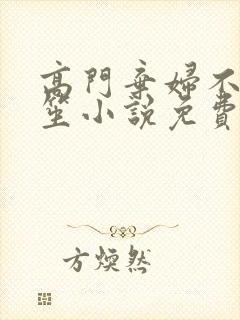 高門棄婦不
笙小說免費
方煥然